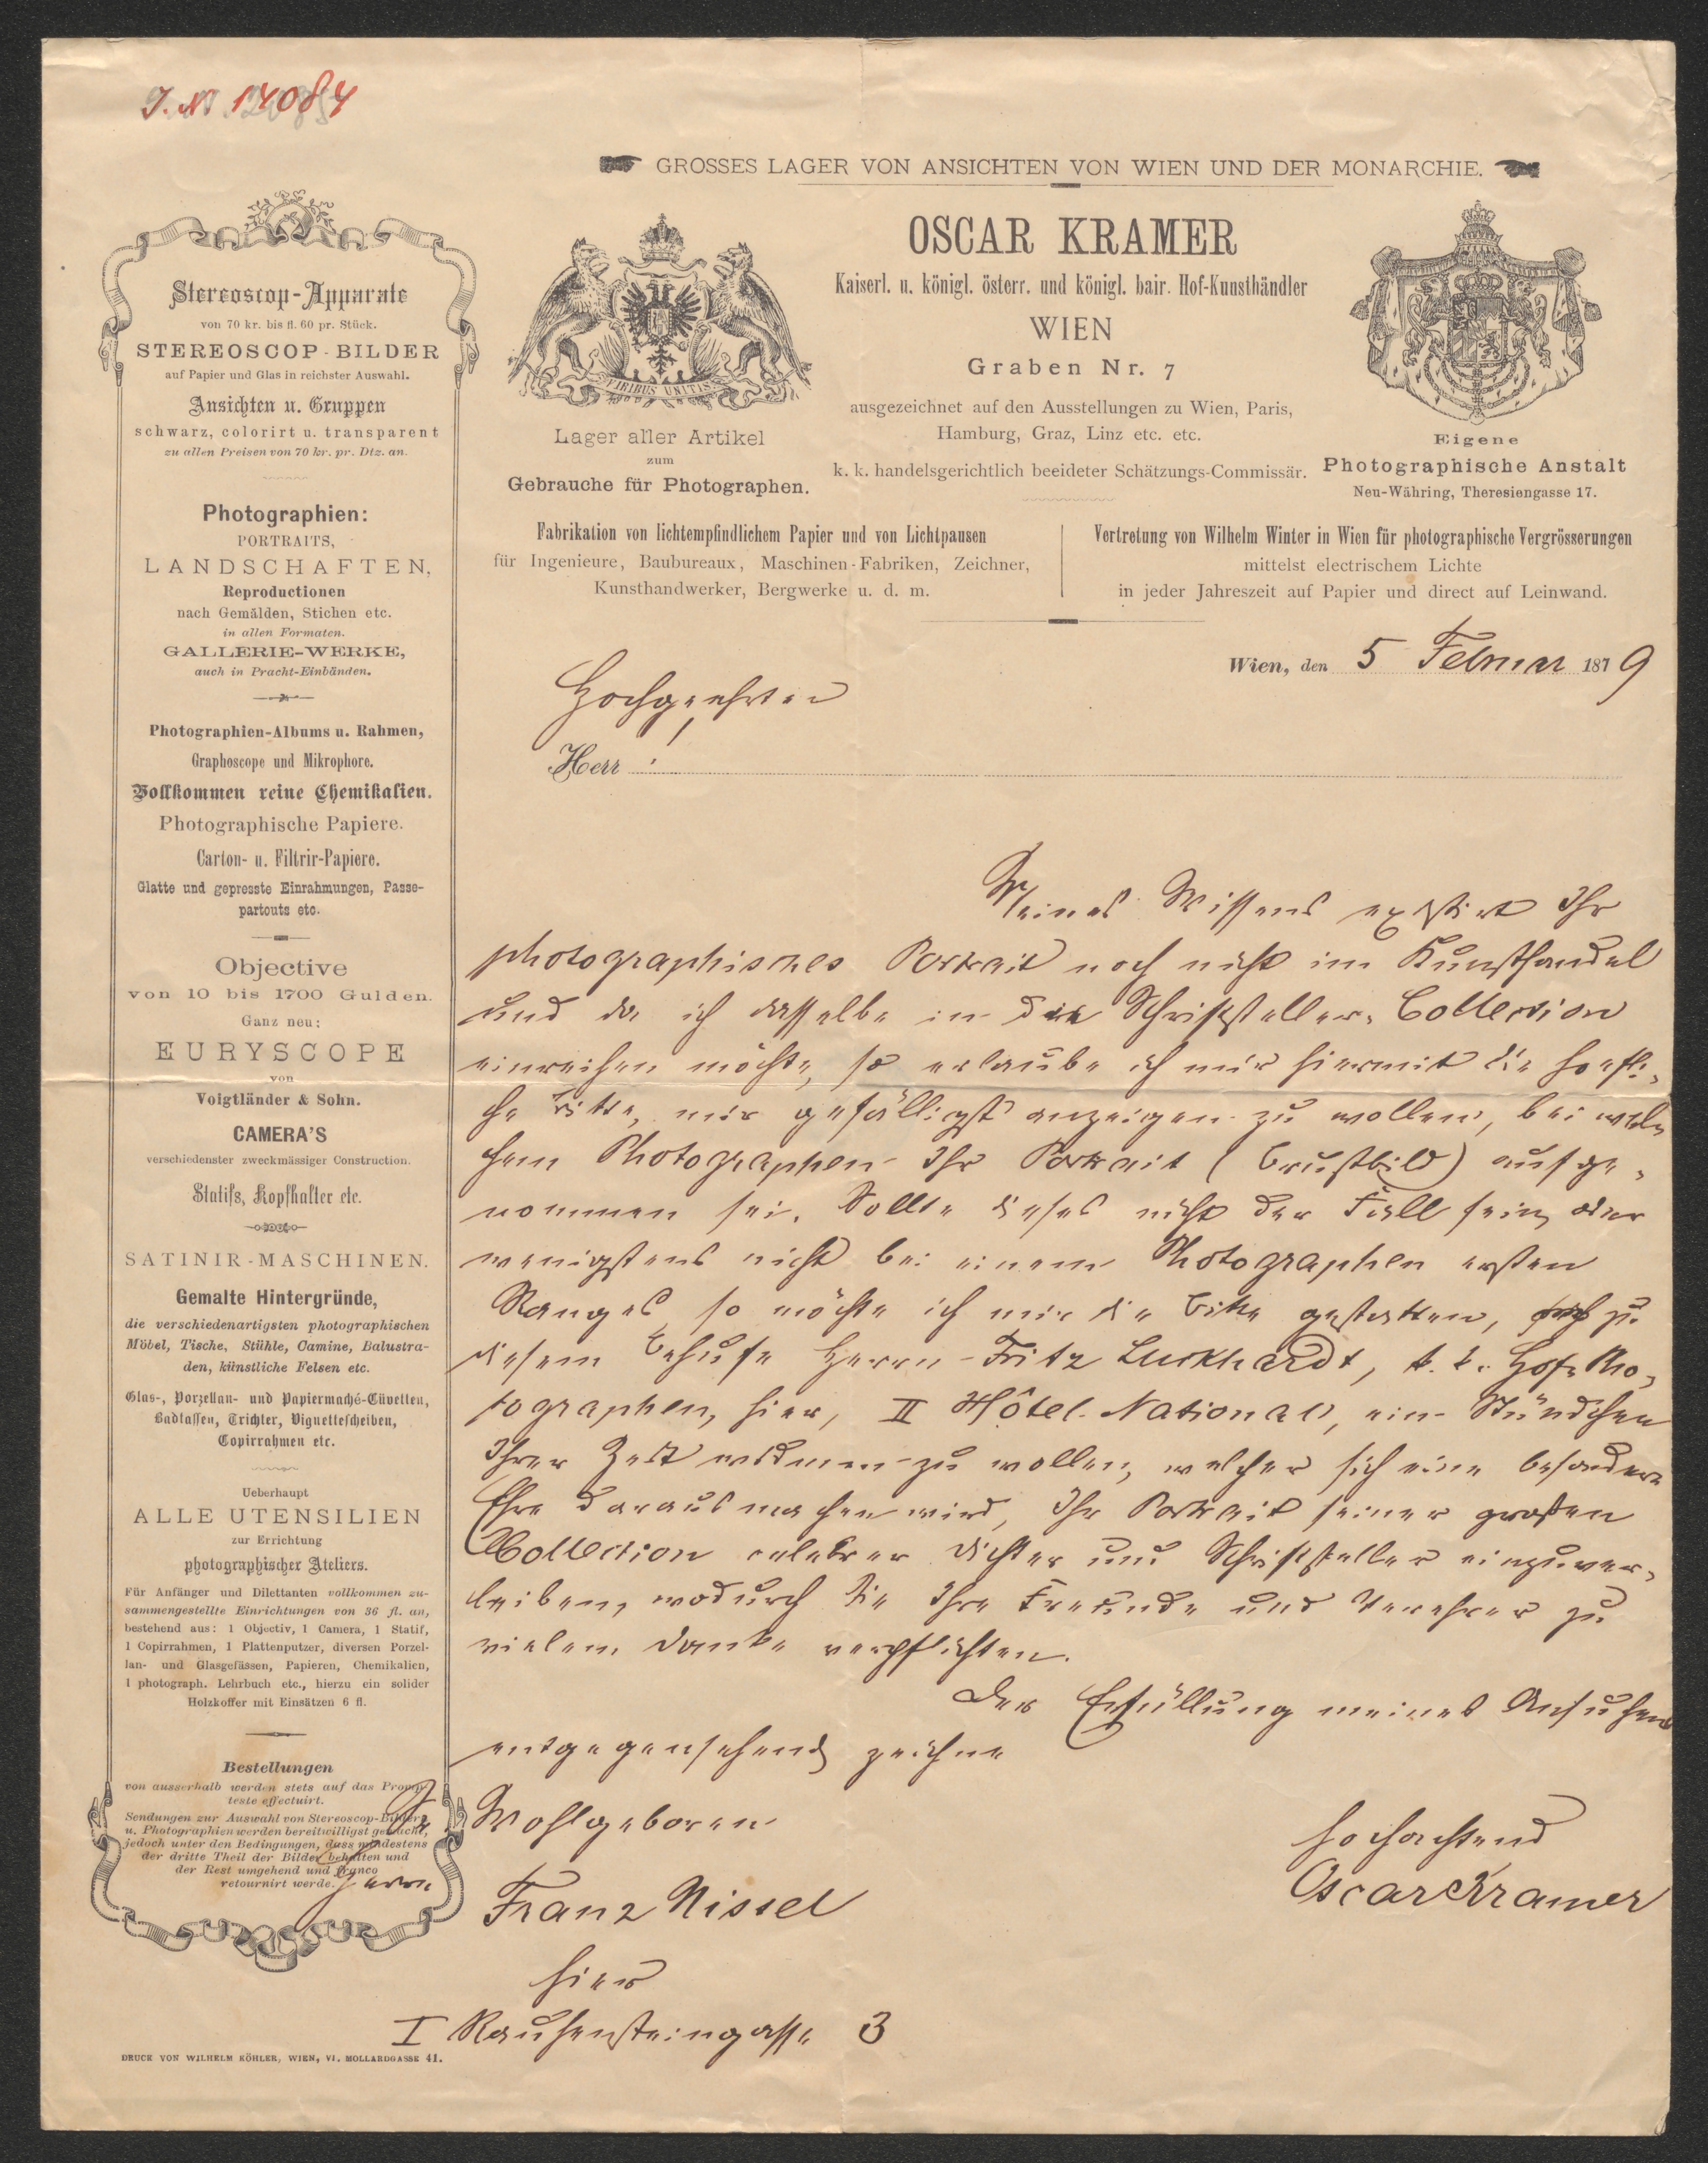 J. N. 14084
GROSSES LAGER VON ANSICHTEN VON WIEN UND DER MONARCHIE.
OSCAR KRAMER
Kaiserl. u. königl. österr. und königl. bair. Hof-Kunsthändler
WIEN
Graben Nr. 7
ausgezeichnet auf den Ausstellungen zu Wien, Paris,
Hamburg, Graz, Linz etc. etc.
k. k. handelsgerichtlich beeideter Schätzungs-Commissär.
VIRIBUS UNITIS
Lager aller Artikel
zum
Gebrauche für Photographen.
Eigene
Photographische Anstalt
Neu-Währing, Theresiengasse 17.
Fabrikation von lichtempfindlichem Papier und von Lichtpausen
für Ingenieure, Baubureaux, Maschinen-Fabriken, Zeichner,
Kunsthandwerker, Bergwerke u. d. m.
Vertretung von Wilhelm Winter in Wien für photographische Vergrösserungen
mittelst electrischem Lichte
in jeder Jahreszeit auf Papier und direct auf Leinwand.
Stereoscop-Apparate
von 70 kr. bis fl. 60 pr. Stück.
STEREOSCOP-BILDER
auf Papier und Glas in reichster Auswahl.
Ansichten u. Gruppen
schwarz, colorirt u. transparent
zu allen Preisen von 70 kr. pr. Dtz. an.
Photographien:
PORTRAITS,
LANDSCHAFTEN,
Reproductionen
nach Gemälden, Stichen etc.
in allen Formaten.
GALLERIE-WERKE,
auch in Pracht-Einbänden.
Photographien-Albums u. Rahmen,
Graphoscope und Mikrophore.
Vollkommen reine Chemikalien.
Photographische Papiere.
Carton- u. Filtrir-Papiere.
Glatte und gepresste Einrahmungen, Passe-
partouts etc.
Objective
von 10 bis 1700 Gulden.
Ganz neu:
EURYSCOPE
von
Voigtländer & Sohn.
CAMERA'S
verschiedenster zweckmässiger Construction.
Statifs, Kopfhalter etc.
SATINIR-MASCHINEN.
Gemalte Hintergründe,
die verschiedenartigsten photographischen
Möbel, Tische, Stühle, Camine, Balustra-
den, künstliche Felsen etc.
Glas-, Porzellan- und Papiermaché-Cüvetten,
Badtassen, Trichter, Vignettescheiben,
Copirrahmen etc.
Ueberhaupt
ALLE UTENSILIEN
zur Errichtung
photographischer Ateliers.
Für Anfänger und Dilettanten vollkommen zu-
sammengestellte Einrichtungen von 36 fl. an,
bestehend aus: 1 Objectiv, 1 Camera, 1 Statif,
1 Copirrahmen, 1 Plattenputzer, diversen Porzel-
lan- und Glasgefässen, Papieren, Chemikalien,
1 photograph. Lehrbuch etc., hierzu ein solider
Holzkoffer mit Einsätzen 6 fl.
Bestellungen
von ausserhalb werden stets auf das Promp-
teste effectuirt.
Sendungen zur Auswahl von Stereoscop-Bildern
u. Photographien werden bereitwilligst gemacht,
jedoch unter den Bedingungen, dass mindestens
der dritte Theil der Bilder behalten und
der Rest umgehend und franco
retournirt werde.
DRUCK VON WILHELM KÖHLER, WIEN, VI. MOLLARDGASSE 41.
Wien, den 5 Februar 1879
Hochgeehrter
Herr !
Meines Wissens existirt Ihr
photographisches Portrait noch nicht im Kunsthandel
und da ich dasselbe in die Schriftsteller-Collection
einreihen möchte, so erlaube ich mir hiermit die höfli-
che Bitte, mir gefälligst anzeigen zu wollen, bei wel-
chem Photographen Ihr Portrait (Brustbild) aufge-
nommen sei. Sollte dieses nicht der Fall sein, oder
wenigstens nicht bei einem Photographen ersten
Ranges, so möchte ich mir die Bitte gestatten, zu
diesem Behufe Herrn Fritz Luckhardt, k. k. Hof-Pho-
tographen, hier, II Hôtel National, ein Stündchen
Ihrer Zeit widmen zu wollen, welcher sich eine besondere
Ehre daraus machen wird, Ihr Portrait seiner großen
Collection celebrer Dichter und Schriftsteller einzuver-
leiben, wodurch Sie Ihre Freunde und Verehrer zu
vielem Danke verpflichten.
Der Erfüllung meines Ansuchens
entgegensehend, zeichne
hochachtend
Oscar Kramer
Sr. Wohlgeboren
Herrn Franz Nissel
hier
I Rauhensteingasse 3